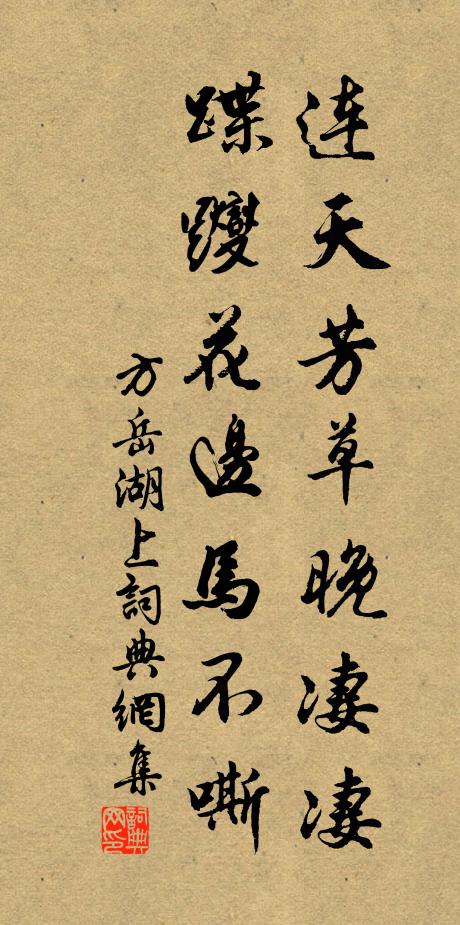 連天芳草晚凄凄
蹀躞花邊馬不嘶
方岳湖上詞典網集
詞典网印